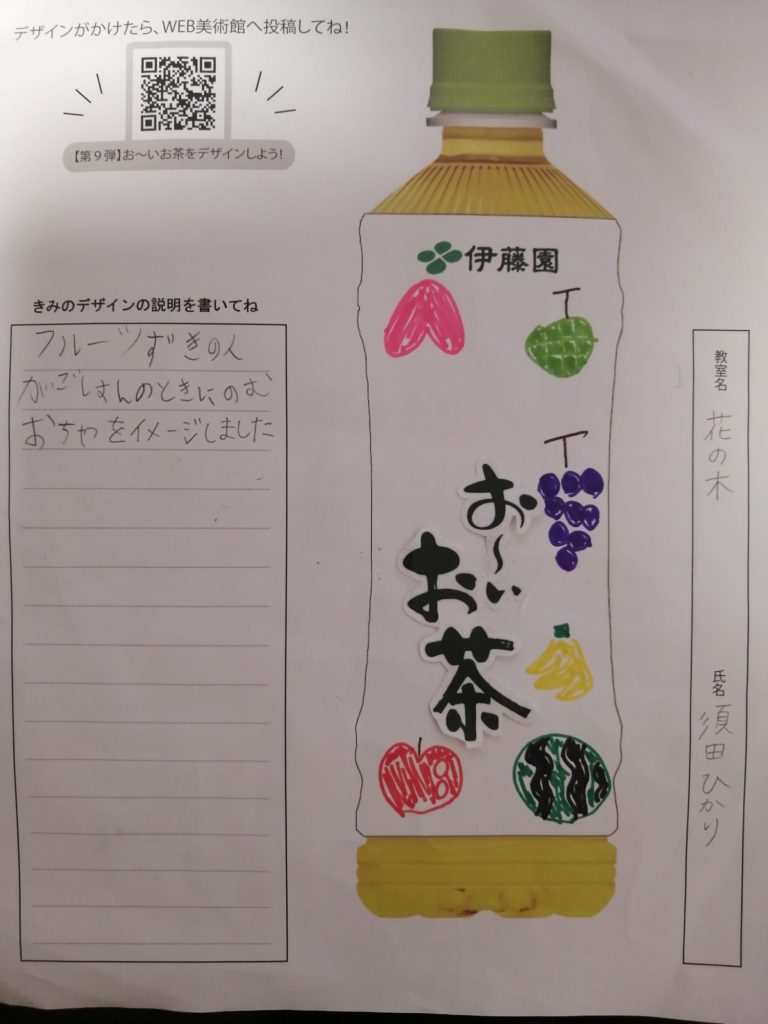 デザインがかけたら、WEB美術館へ投稿してね!
【第9弾】お～いお茶をデザインしよう!
きみのデザインの説明を書いてね
フルーツずきの人
がごはんのときにのむ
おちゃをイメージしました
伊藤園
お～い
お茶
教室名 花の木
氏名 須田ひかり